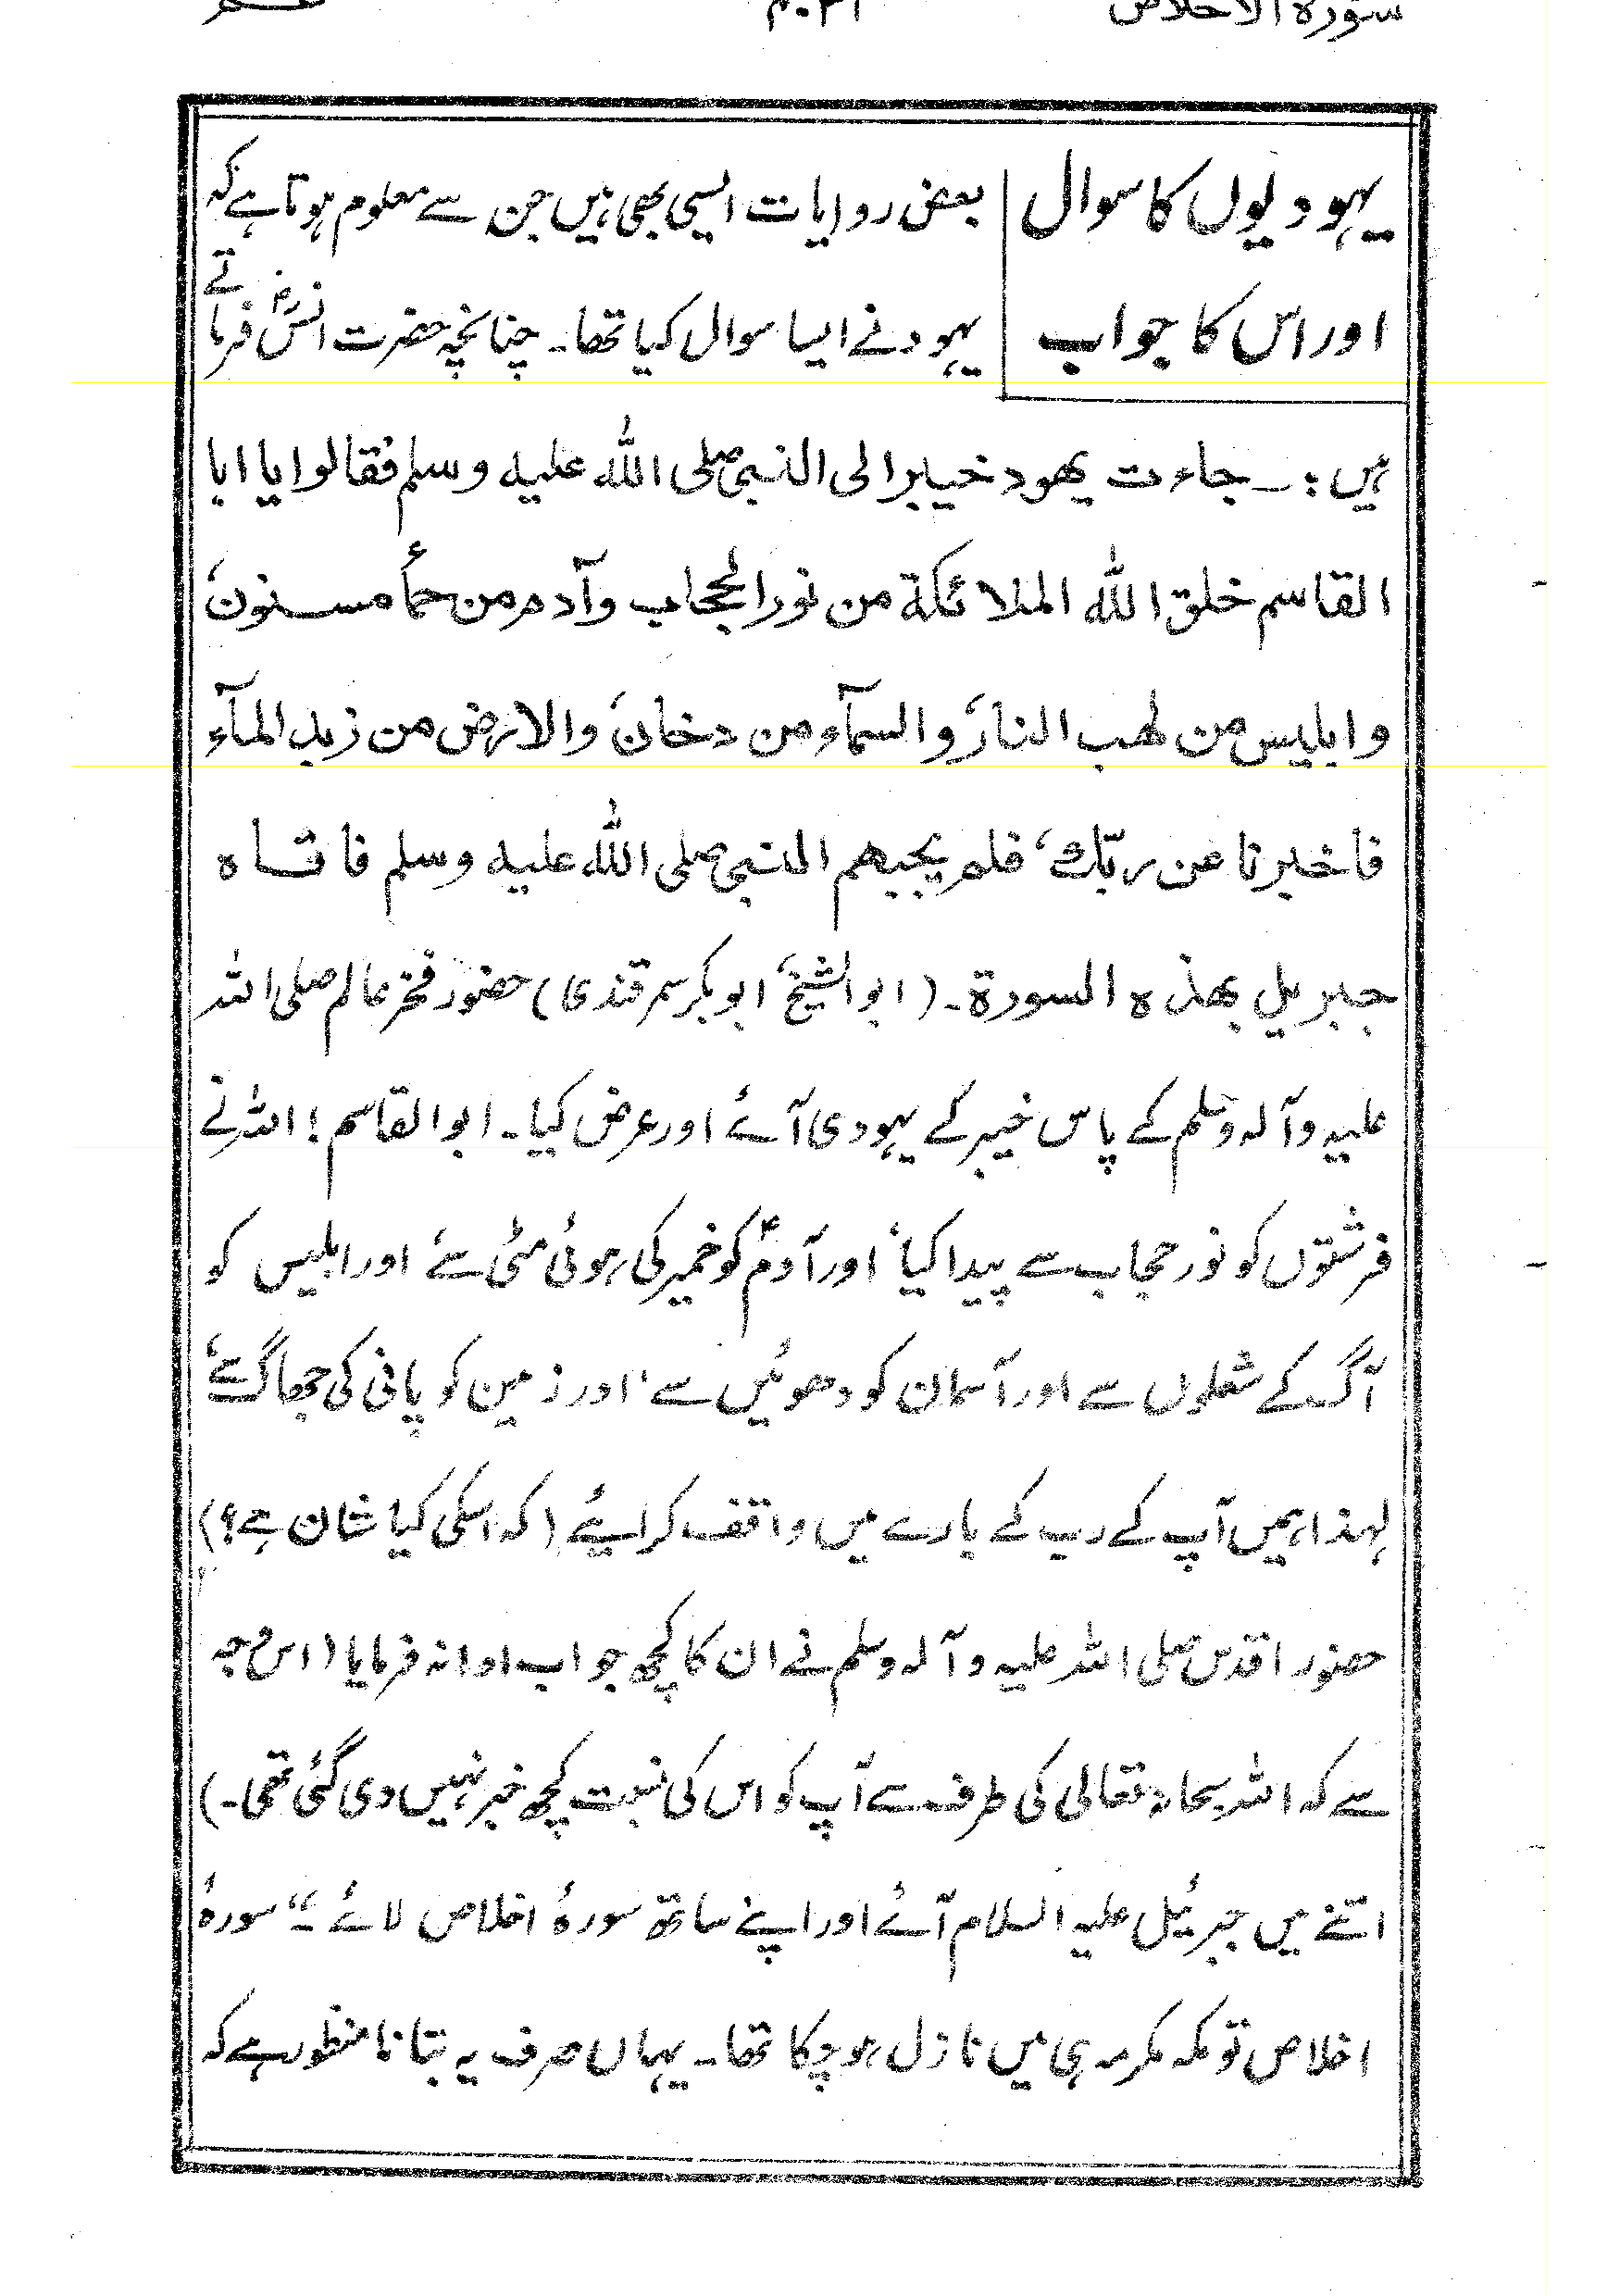 سورة الاخلاص
یہودیوں کا سوال
اور اس کا جواب
بعض روایات ایسی بھی ہیں جن سے معلوم ہوتا ہے کہ
یہود نے ایسا سوال کیا تھا۔ چنانچہ حضرت انسؓ فرماتے
ہیں :۔ جاءت یهود خیبر الی النبی صلی اللہ علیه وسلم فقالوا یا ابا
القاسم خلق اللہ الملائكة من نور الحجاب وآدم من حمأ مسنون،
وابلیس من لهب النار، والسمآء من دخان، والارض من زبد المآء
فاخبرنا عن ربّك، فلم یجبهم النبی صلی اللہ علیه وسلم فاتاه
جبریل بهذه السورة۔ (ابوالشیخ، ابوبکر سمرقندی) حضور فخر عالم صلی اللہ
علیہ وآلہ وسلم کے پاس خیبر کے یہودی آئے اور عرض کیا۔ ابوالقاسم ! اللہ نے
فرشتوں کو نور حجاب سے پیدا کیا، اور آدمؑ کو خمیر کی ہوئی مٹی سے، اور ابلیس کو
آگ کے شعلوں سے اور آسمان کو دھوئیں سے، اور زمین کو پانی کی جھاگ سے،
لہذا ہمیں آپ کے رب کے بارے میں واقف کرائیے (کہ اسکی کیا شان ہے؟)
حضور اقدس صلی اللہ علیہ وآلہ وسلم نے ان کا کچھ جواب ادا نہ فرمایا (اس وجہ
سے کہ اللہ سبحانہ تعالی کی طرف سے آپ کو اس کی نسبت کچھ خبر نہیں دی گئی تھی۔)
اتنے میں جبرئیل علیہ السلام آئے اور اپنے ساتھ سورۂ اخلاص لائے۔“ سورۂ
اخلاص تو مکہ مکرمہ ہی میں نازل ہو چکا تھا۔ یہاں صرف یہ بتانا منظور ہے کہ